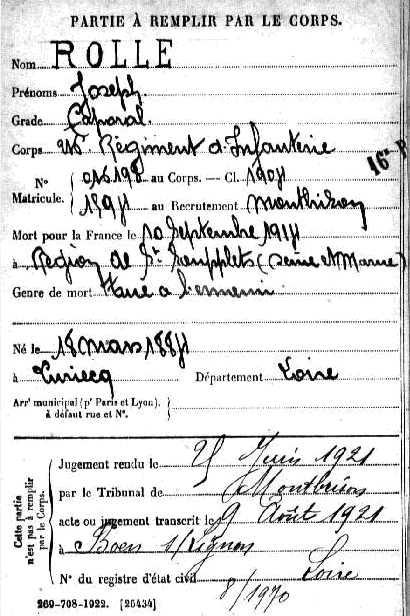 PARTIE À REMPLIR PAR LE CORPS.
Nom ROLLE
Prénoms Joseph
Grade Caporal
Corps 216 Régiment d'Infanterie
N° Matricule. 016198 au Corps. — Cl. 1904
1894 au Recrutement Montbrison
Mort pour la France le 10 Septembre 1914
à Région de St Soupplets (Seine et Marne)
Genre de mort Tué à l'ennemi
Né le 18 Mars 1884
à Luriecq Département Loire
Arrt municipal (pr Paris et Lyon), à défaut rue et N°.
Cette partie n'est pas à remplir par le Corps.
Jugement rendu le 25 Juin 1921
par le Tribunal de Montbrison
acte ou jugement transcrit le 9 Août 1921
à Boen s/Lignon
Loire
N° du registre d'état civil 8/1970
269-708-1922. [26434]